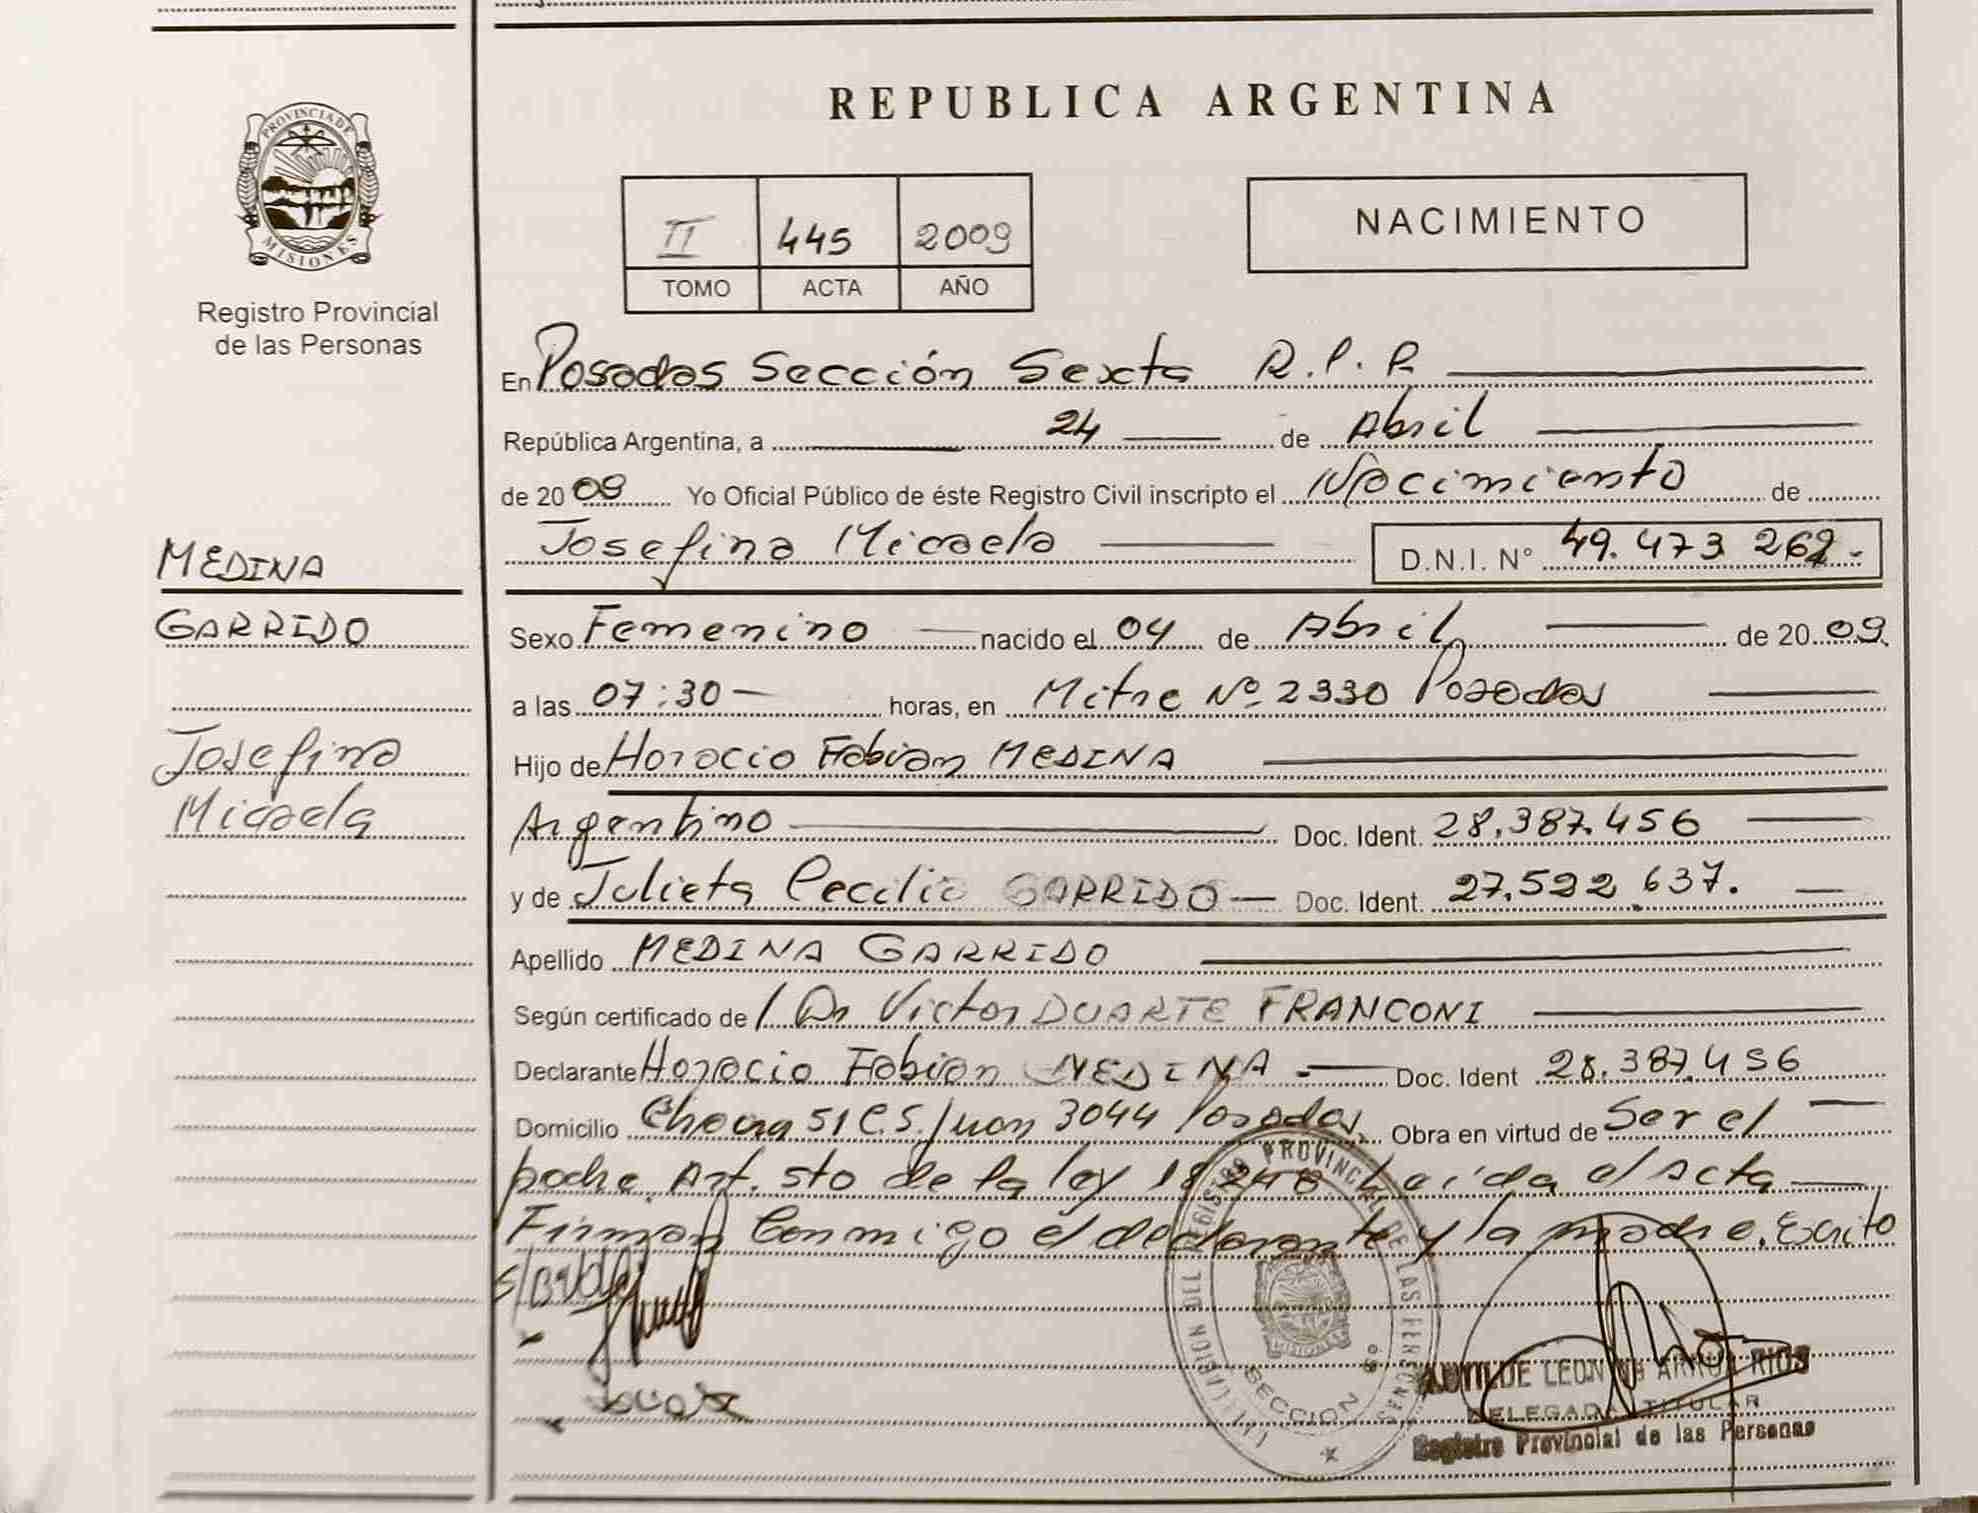 PROVINCIA DE
MISIONES
Registro Provincial
de las Personas
MEDINA
GARRIDO
Josefina
Micaela
REPUBLICA ARGENTINA
II 445 2009
TOMO ACTA AÑO
NACIMIENTO
En Posadas Sección Sexta R.P.P
República Argentina, a 24 de Abril
de 2009 Yo Oficial Público de éste Registro Civil inscripto el Nacimiento de
Josefina Micaela D.N.I. N° 49.473 262.-
Sexo Femenino nacido el 04 de Abril de 2009
a las 07:30 horas, en Mitre Nº 2330 Posadas
Hijo de Horacio Fabian MEDINA
Argentino Doc. Ident. 28.387.456
y de Julieta Cecilia GARRIDO Doc. Ident. 27.522.637.
Apellido MEDINA GARRIDO
Según certificado de Dr Victor DUARTE FRANCONI
Declarante Horacio Fabian MEDINA Doc. Ident 28.387.456
Domicilio 51 C.S. Juan 3044 Posadas Obra en virtud de Ser el
padre. Art. 5to de la ley 18248 Leída el acta
Firman Conmigo el declarante y la madre. Escrito
REGISTRO PROVINCIAL DE LAS PERSONAS
SECCION
DELEGADA TITULAR
Registro Provincial de las Personas